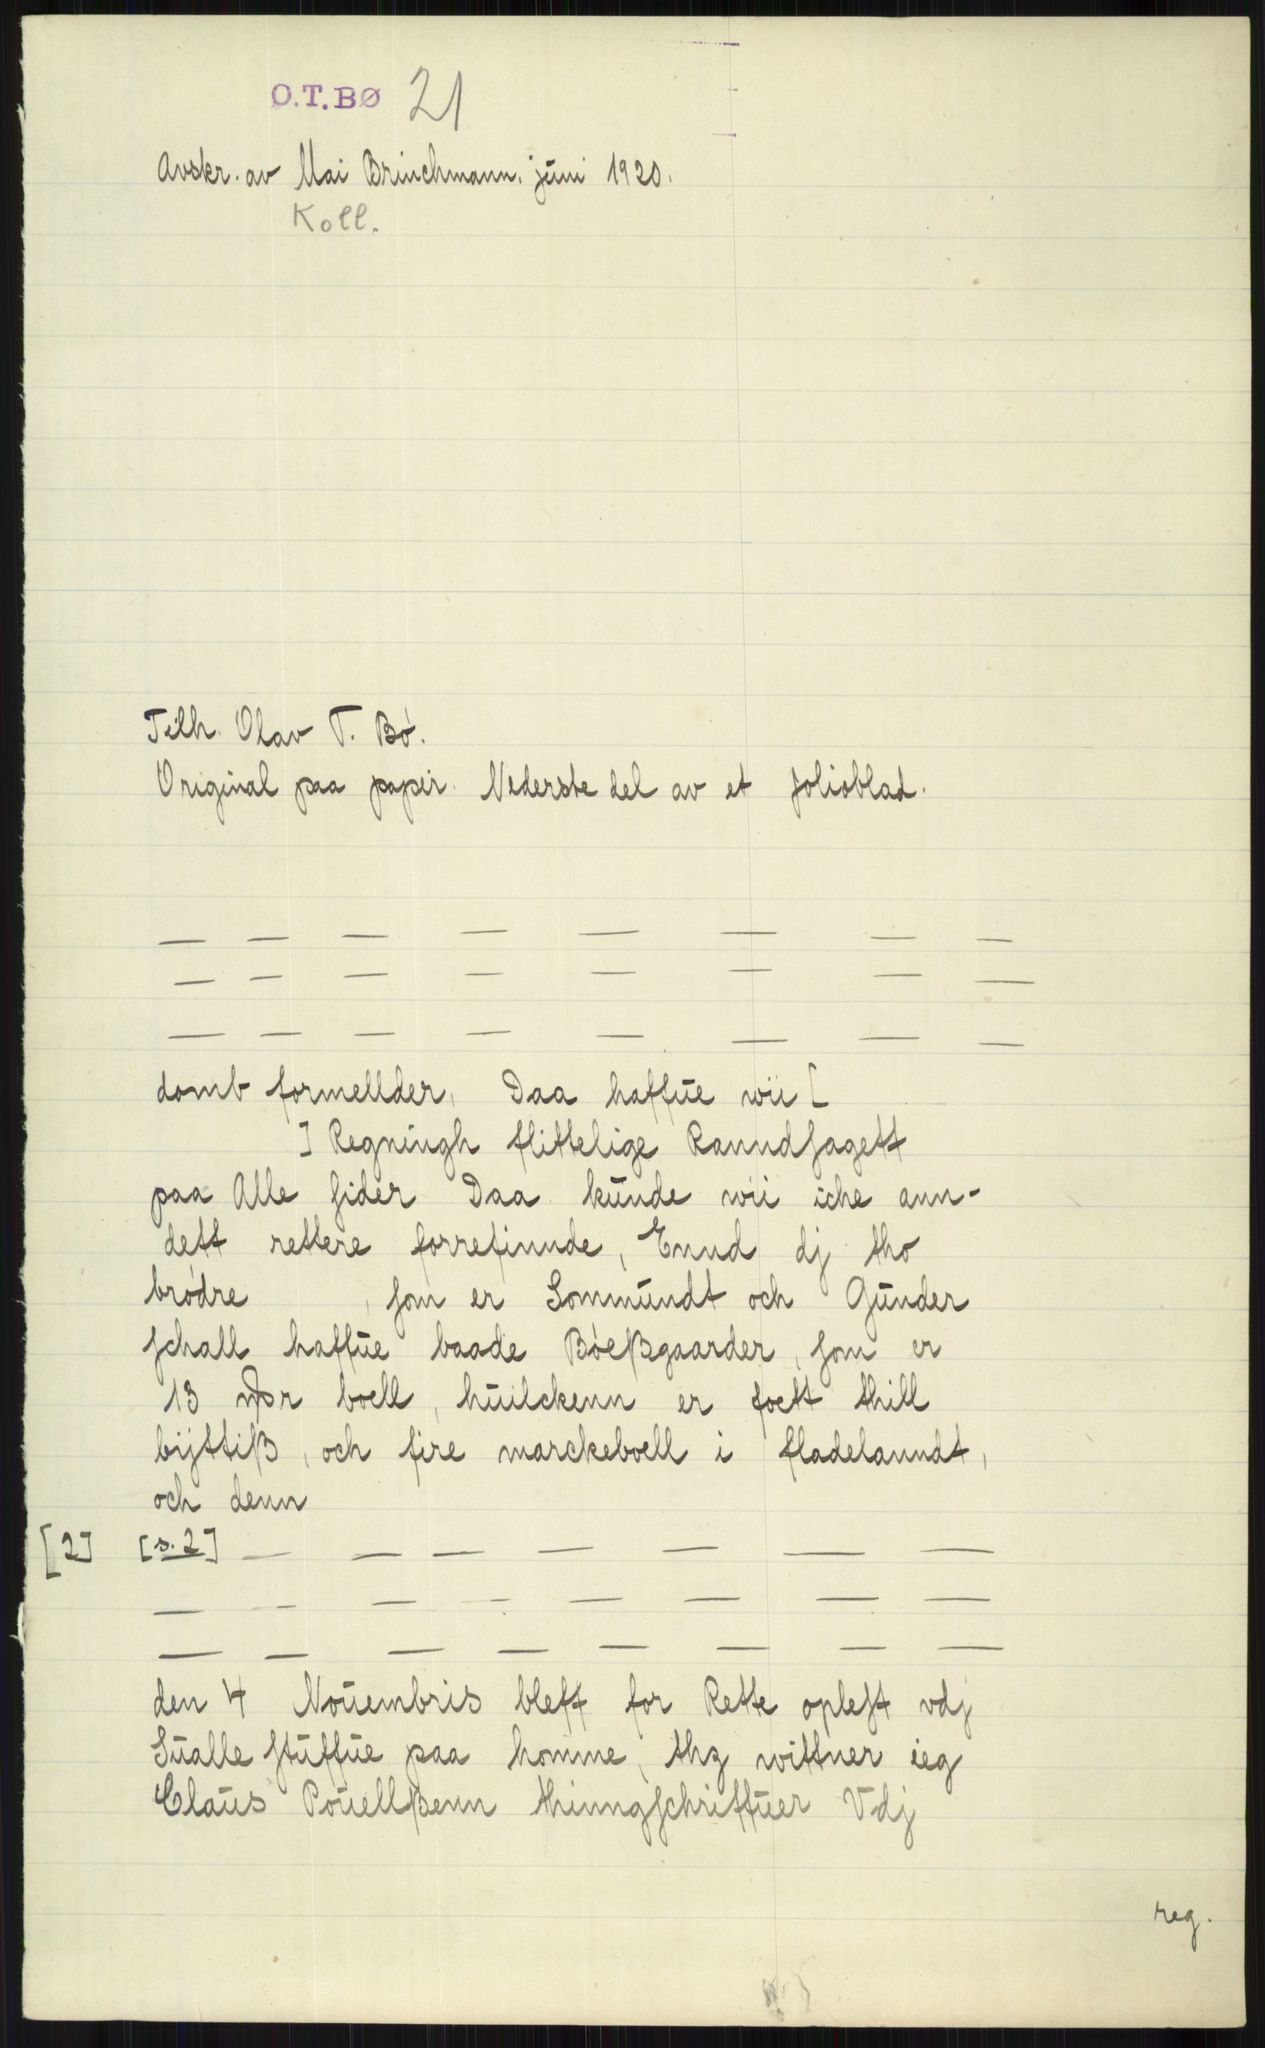 O.T.BØ 21
Avskr. av Mai Brinchmann. juni 1920.
Koll.
Tilh. Olav T. Bø.
Original paa papir. Nederste del av et folioblad.
— — — — — — — —
— — — — — — — —
— — — — — — — —
domb formellder, Daa haffue wii [
] Regningh flittelige Ranndsagett
paa Alle sider Daa kunde wii icke ann-
dett rettere forrefinnde, Ennd dj tho
brødre , som er Sommundt och Gunder
schall haffue baade Bøeßgaarder, som er
13 boell, huilckenn er foett thill
bijttiß, och fire marckeboell i fladelanndt,
och denn
[2] [s. 2] — — — — — — —
— — — — — — — —
— — — — — — — —
den 4 Nouembris bleff for Rette oplest vdj
Sualle stuffue paa homme, thz wittner ieg
Claus Pouellßenn thinngschriffuer Vdj
reg.